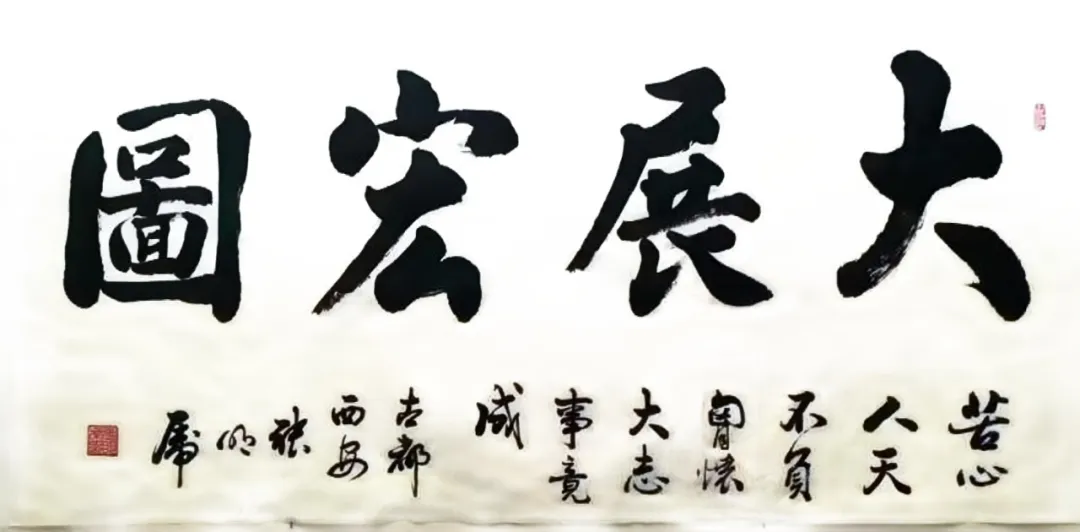 大展宏圖
苦心
人天
不負
胷懷
大志
事竟
成
古都
西安